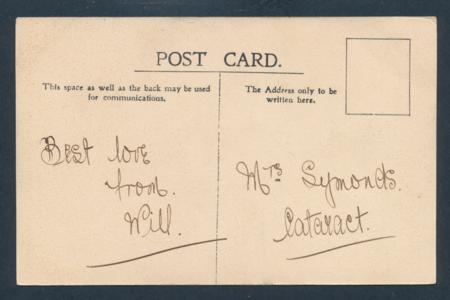 POST CARD.
This space as well as the back may be used
for communications.
The Address only to be
written here.
Best love
from.
Will.
Mrs Symonds.
Cataract.